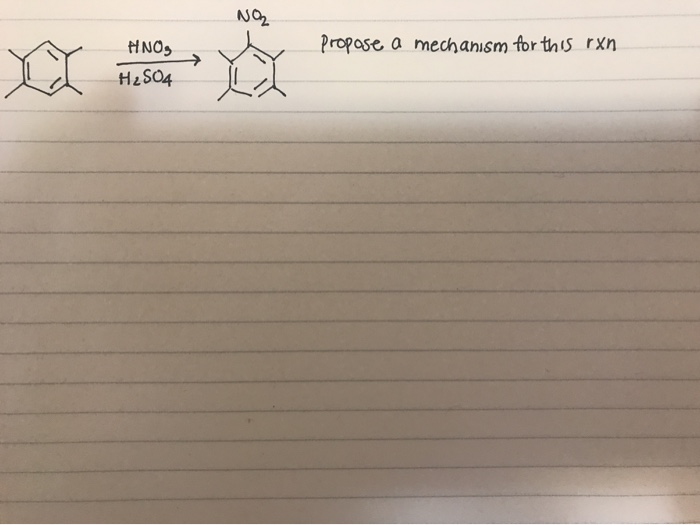 NO2
HNO3
H2SO4
Propose a mechanism for this rxn